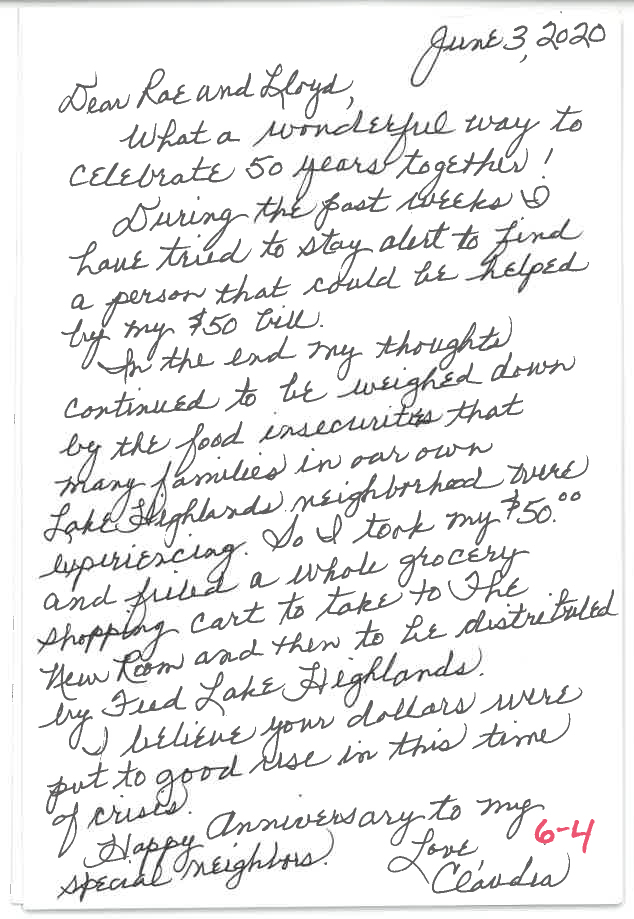 June 3, 2020
Dear Rae and Lloyd,
What a wonderful way to
celebrate 50 years together!
During the past weeks I
have tried to stay alert to find
a person that could be helped
by my $50 bill.
In the end my thoughts
continued to be weighed down
by the food insecurities that
many families in our own
Lake Highlands neighborhood were
experiencing. So I took my $50.00
and filled a whole grocery
shopping cart to take to The
New Room and then to be distributed
by Feed Lake Highlands.
I believe your dollars were
put to good use in this time
of crisis.
Happy Anniversary to my
special neighbors.
Love,
Claudia
6-4